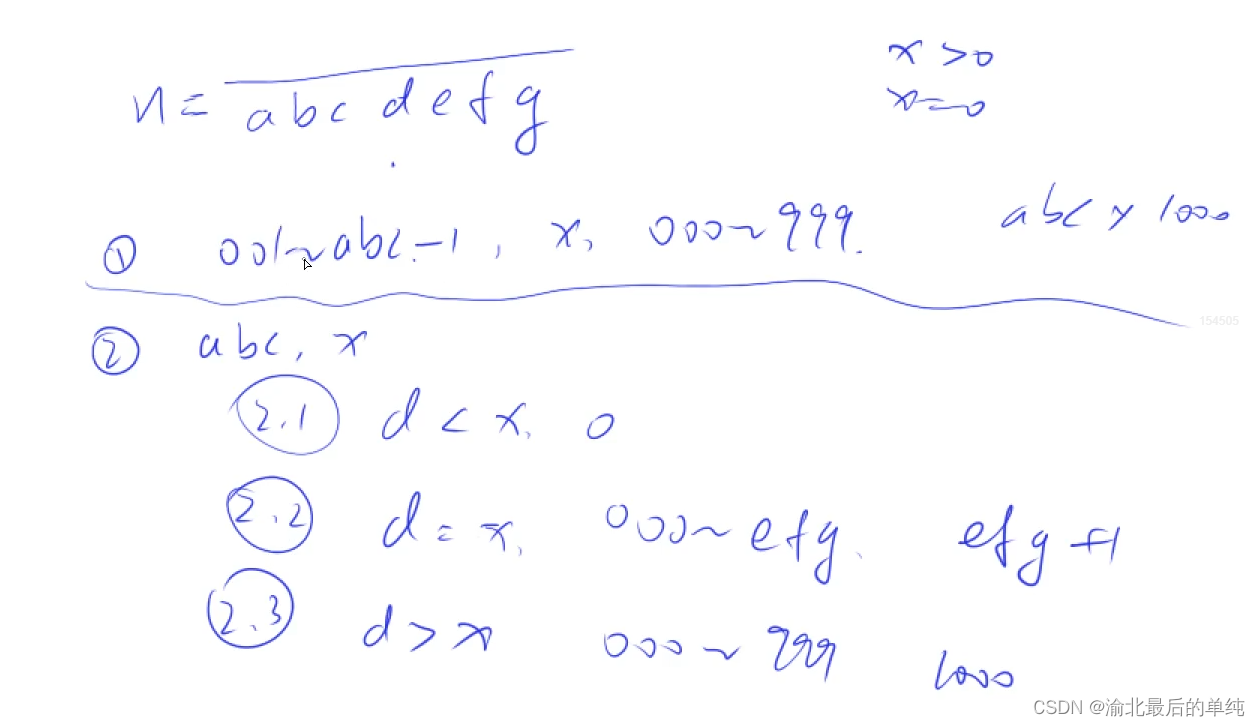 x > 0
n = abcdefg
x = 0
① 001~abc-1, x, 000~999. abc × 1000
154505
② abc, x
2.1 d < x, 0
2.2 d = x, 000~efg. efg+1
2.3 d > x 000~999 1000
CSDN @渝北最后的单纯